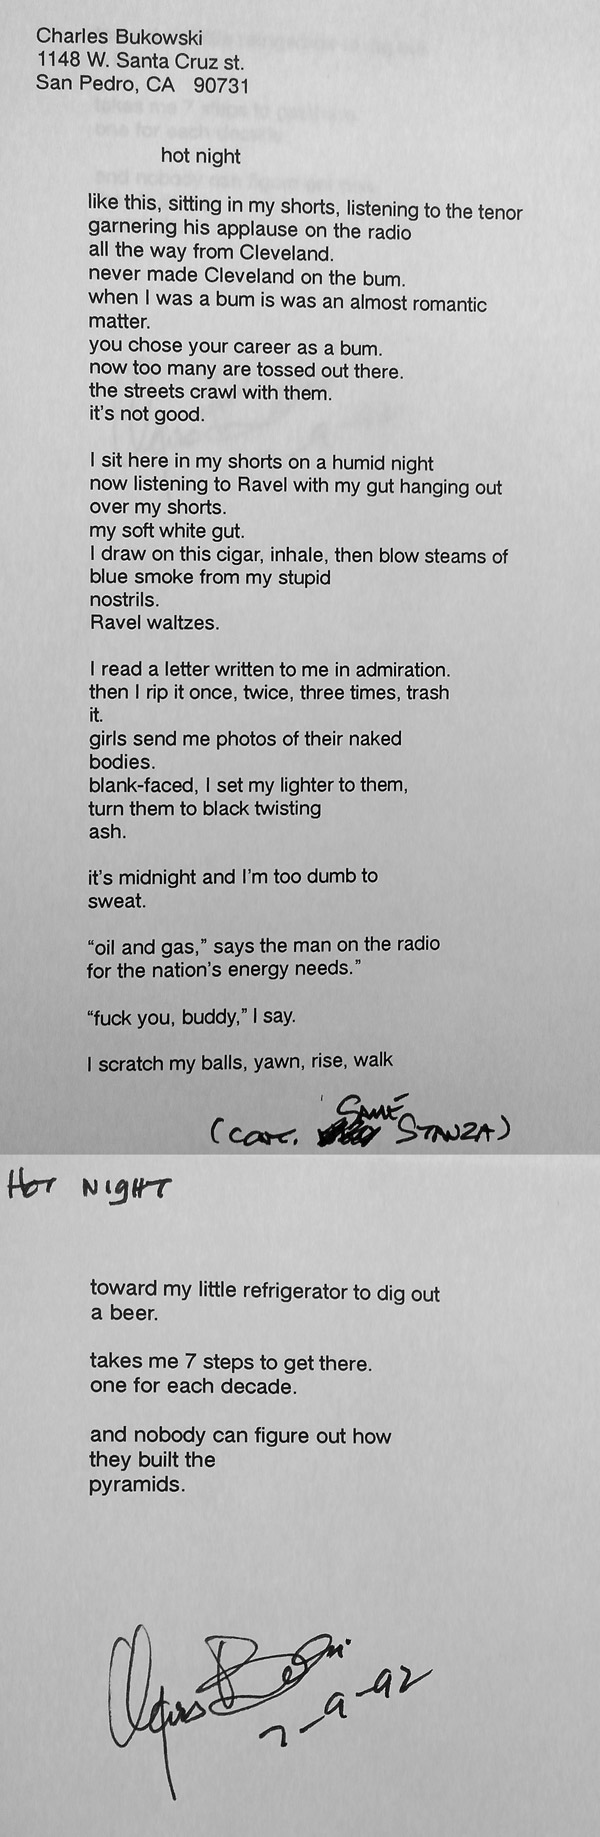 Charles Bukowski
1148 W. Santa Cruz st.
San Pedro, CA 90731
hot night
like this, sitting in my shorts, listening to the tenor
garnering his applause on the radio
all the way from Cleveland.
never made Cleveland on the bum.
when I was a bum is was an almost romantic
matter.
you chose your career as a bum.
now too many are tossed out there.
the streets crawl with them.
it's not good.
I sit here in my shorts on a humid night
now listening to Ravel with my gut hanging out
over my shorts.
my soft white gut.
I draw on this cigar, inhale, then blow steams of
blue smoke from my stupid
nostrils.
Ravel waltzes.
I read a letter written to me in admiration.
then I rip it once, twice, three times, trash
it.
girls send me photos of their naked
bodies.
blank-faced, I set my lighter to them,
turn them to black twisting
ash.
it's midnight and I'm too dumb to
sweat.
“oil and gas,” says the man on the radio
for the nation's energy needs.”
“fuck you, buddy,” I say.
I scratch my balls, yawn, rise, walk
SAME
(CONT. STANZA)
HOT NIGHT
toward my little refrigerator to dig out
a beer.
takes me 7 steps to get there.
one for each decade.
and nobody can figure out how
they built the
pyramids.
7-9-92